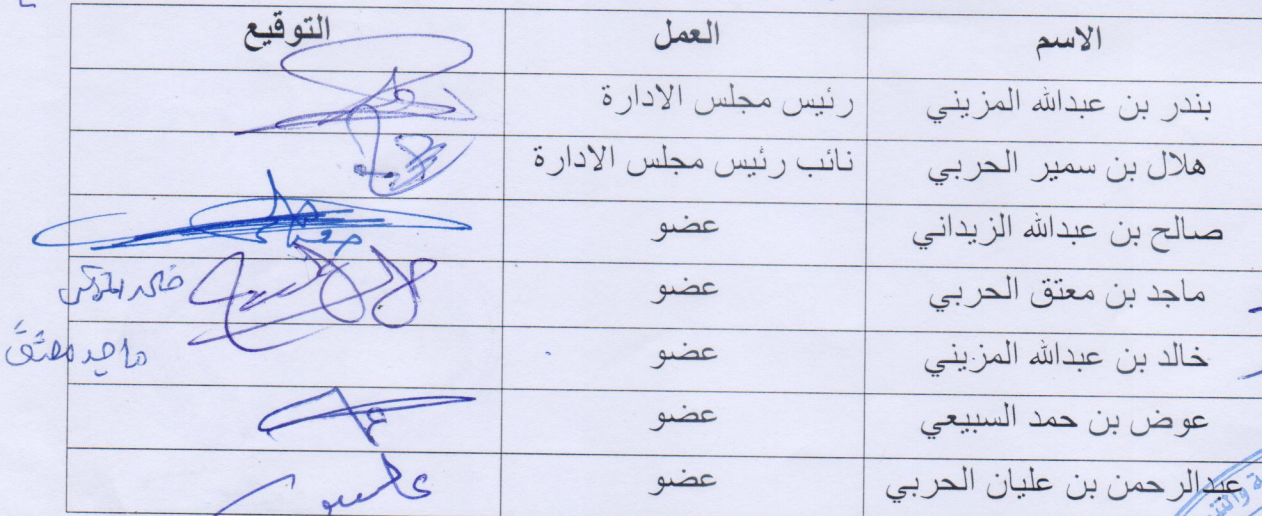 الاسم العمل التوقيع
بندر بن عبدالله المزيني رئيس مجلس الادارة
هلال بن سمير الحربي نائب رئيس مجلس الادارة
صالح بن عبدالله الزيداني عضو
ماجد بن معتق الحربي عضو
خالد بن عبدالله المزيني عضو ماجد معتق
عوض بن حمد السبيعي عضو
عبدالرحمن بن عليان الحربي عضو